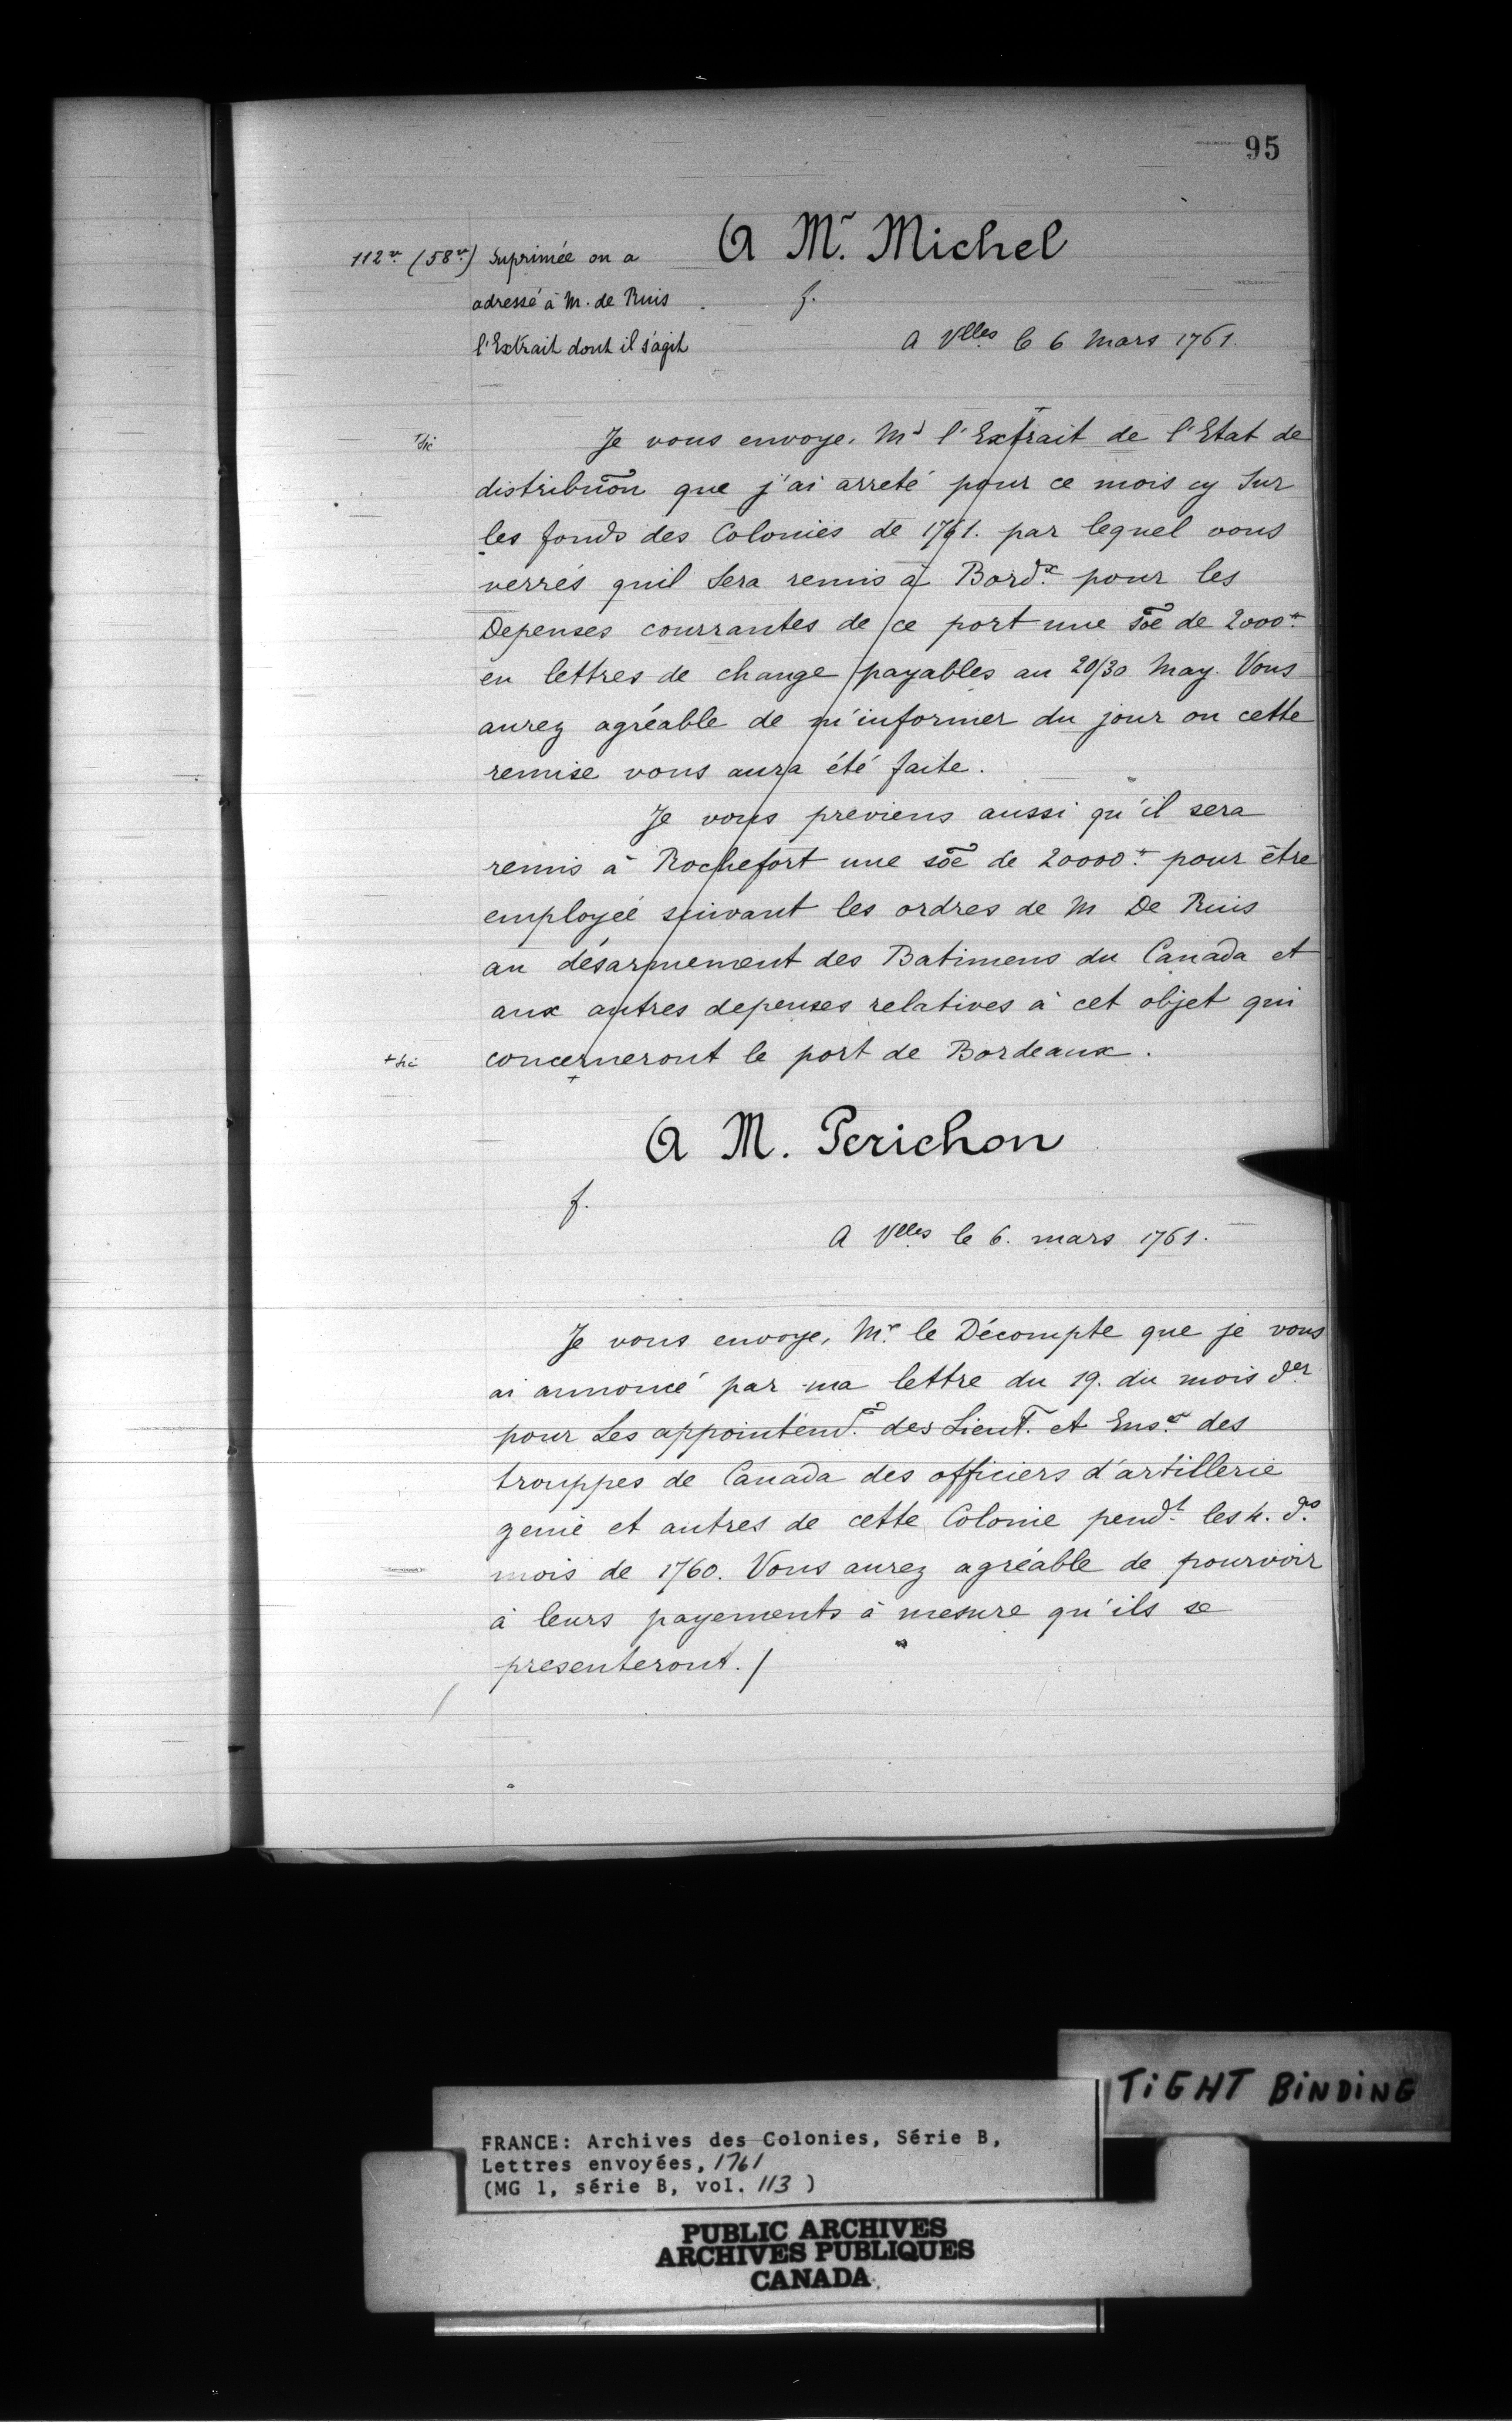 95
A Mr. Michel
112 vo. (58 vo.) Suprimée on a
adressé à M. de Ruis
l'Extrait dont il s'agit
f.
A Vlles le 6 Mars 1761.
+ sic
Je vous envoye, Mr l'Extrait de l'Etat de
distribuõn que j'ai arreté pour ce mois cy Sur
les fonds des Colonies de 1761. par lequel vous
verrés quil Sera remis à Bordx. pour les
Depenses courrantes de ce port une sõe de 2000 ₶.
en lettres de change payables au 20/30 May. Vous
aurez agréable de m'informer du jour ou cette
remise vous aura été faite.
Je vous previens aussi qu'il sera
remis à Rochefort une sõe de 20000 ₶. pour être
employée suivant les ordres de M De Ruis
au désarmement des Batimens du Canada et
aux autres depenses relatives à cet objet qui
+ sic
concerneront le port de Bordeaux.
+
A M. Perichon
f.
A Vlles le 6. mars 1761.
Je vous envoye, Mr. le Décompte que je vous
ai annoncé par ma lettre du 19. du mois der.
pour Les appointemd. des Lieut. et Ens. des
trouppes de Canada des officiers d'artillerie
genie et autres de cette Colonie pendt. les 4. ds.
mois de 1760. Vous aurez agréable de pourvoir
à leurs payements à mesure qu'ils se
presenteront. /
TIGHT BINDING
FRANCE: Archives des Colonies, Série B,
Lettres envoyées, 1761
(MG 1, série B, vol. 113 )
PUBLIC ARCHIVES
ARCHIVES PUBLIQUES
CANADA